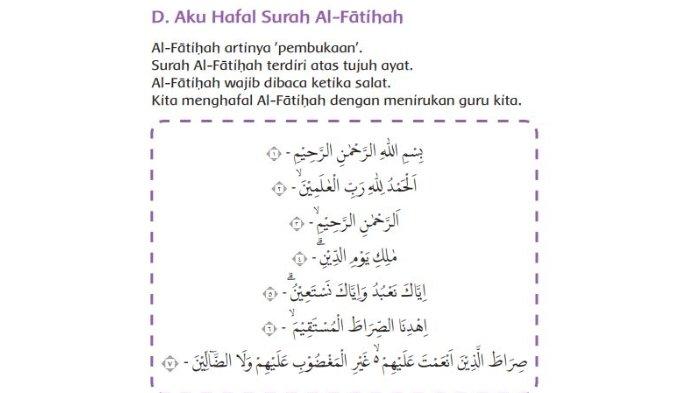 D. Aku Hafal Surah Al-Fātiḥah
Al-Fātiḥah artinya 'pembukaan'.
Surah Al-Fātiḥah terdiri atas tujuh ayat.
Al-Fātiḥah wajib dibaca ketika salat.
Kita menghafal Al-Fātiḥah dengan menirukan guru kita.
بِسْمِ اللّٰهِ الرَّحْمٰنِ الرَّحِيْمِ - ١
اَلْحَمْدُ لِلّٰهِ رَبِّ الْعٰلَمِيْنَۙ - ٢
اَلرَّحْمٰنِ الرَّحِيْمِۙ - ٣
مٰلِكِ يَوْمِ الدِّيْنِۗ - ٤
اِيَّاكَ نَعْبُدُ وَاِيَّاكَ نَسْتَعِيْنُۗ - ٥
اِهْدِنَا الصِّرَاطَ الْمُسْتَقِيْمَۙ - ٦
صِرَاطَ الَّذِيْنَ اَنْعَمْتَ عَلَيْهِمْ ەۙ غَيْرِ الْمَغْضُوْبِ عَلَيْهِمْ وَلَا الضَّاۤلِّيْنَ - ٧